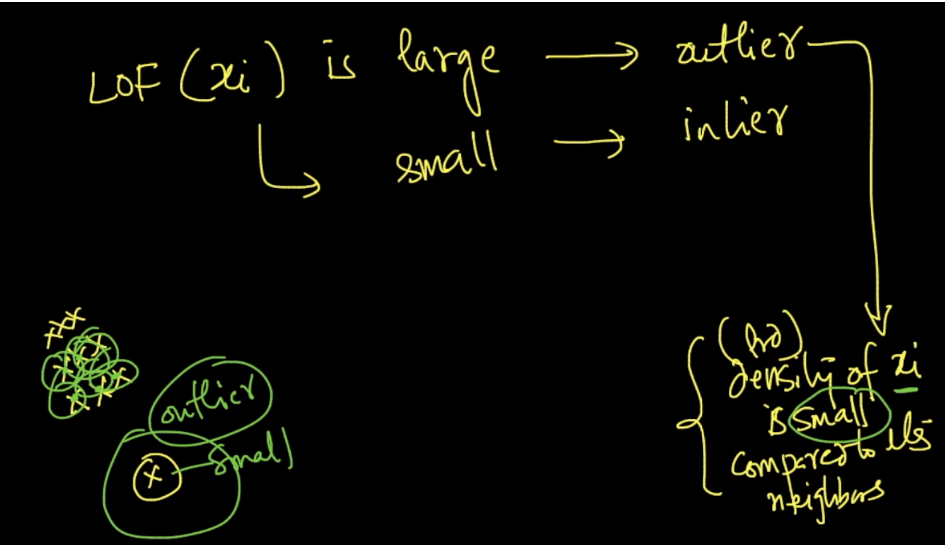 LOF (xi) is large → outlier
small → inlier
(lrd)
density of xi
is small
compared to its
neighbors
outlier
x - small